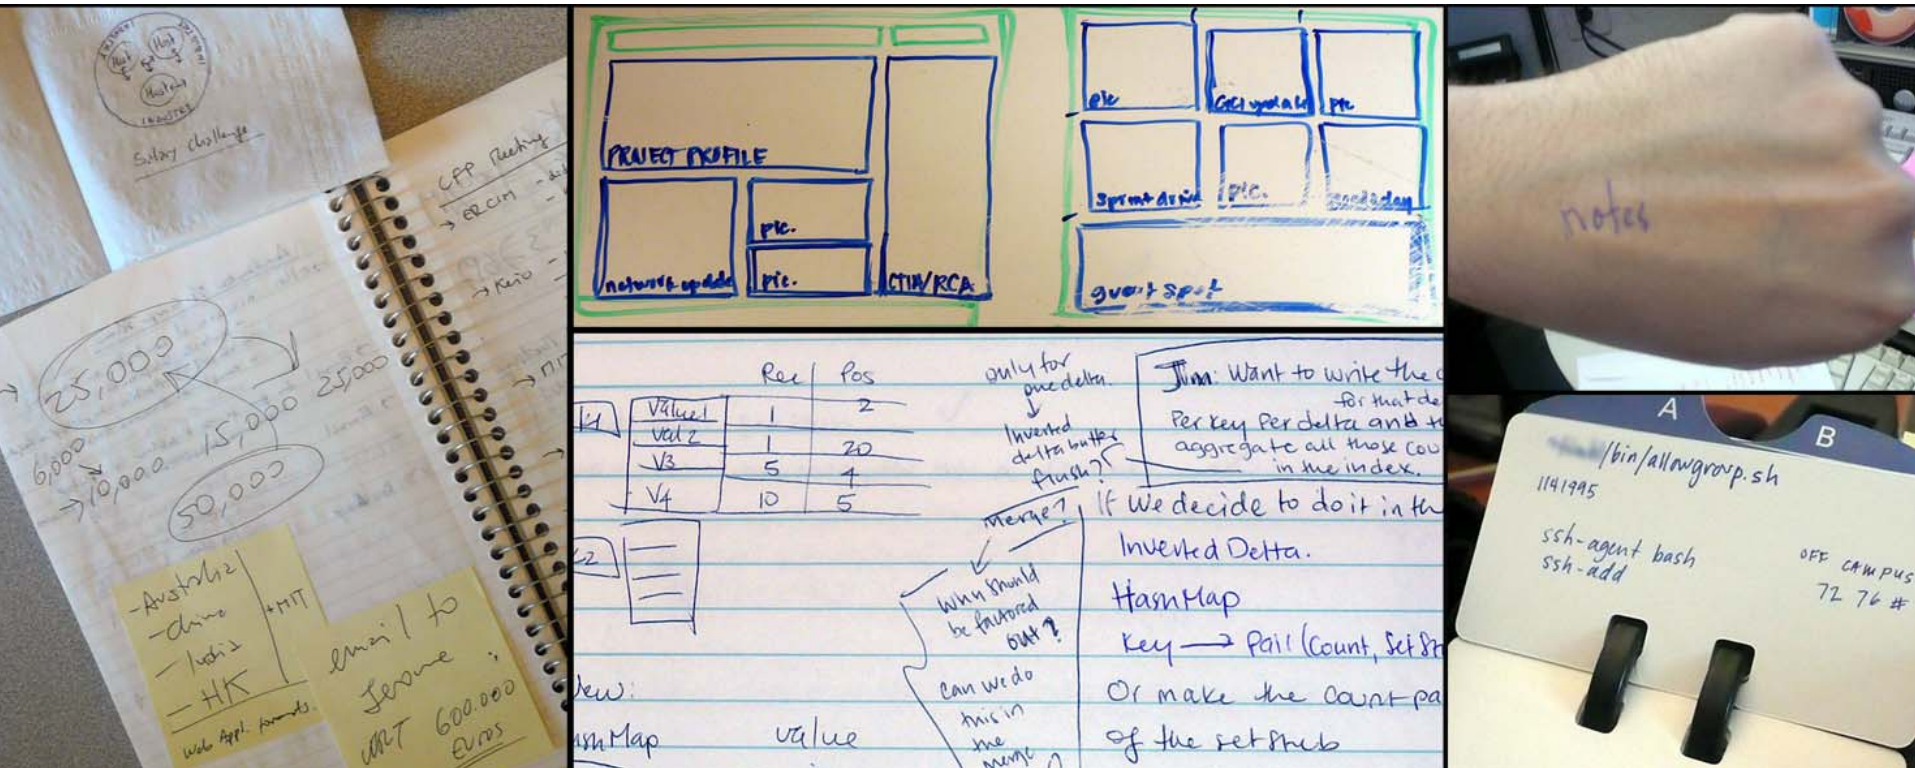 Host
Host
INDUSTRY
Salary challenge
CPP Meeting
→ ERCIM -
→ Keio -
→ MIT
25,000
25,000
6,000
→ 10,000 15,000
50,000
- Australia
- China
- India
- HK
+ MIT
Web Appl. formats.
email to
Jerome :
WRT 600.000
Euros
PROJECT PROFILE
network update
pic.
pic.
CTIA/RCA
pic
pic
Sprint drive
pic.
guest spot
Rec Pos
Value1 1 2
Val 2 1 20
V3 5 4
V4 10 5
only for
one delta.
↓
Inverted
delta buffer
flush?
Merge?
Why should
be factored
out?
Can we do
this in
the
merge
Jim: Want to write the
for that de
Per key Per delta and
aggregate all those cou
in the index.
If we decide to do it in th
Inverted Delta.
HashMap
Key → Pair (Count, SetSt
Or make the count pa
of the setstub
value
notes
A
B
/bin/allowgroup.sh
1141995
ssh-agent bash
ssh-add
OFF CAMPUS
72 76 #